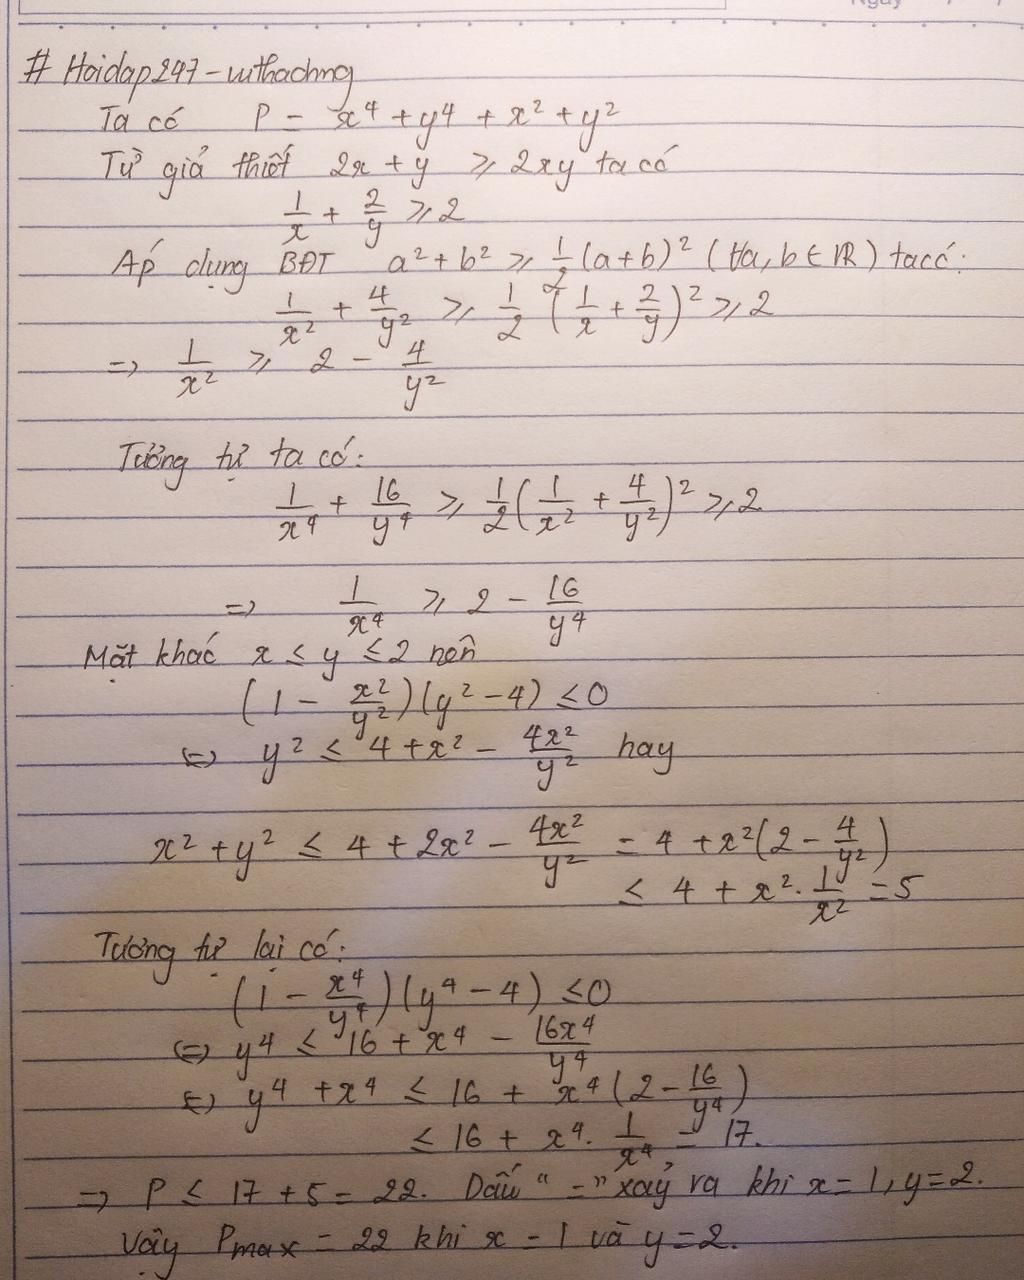 Ngày
# Hoidap247 - vuthachng
Ta có P = x⁴ + y⁴ + x² + y²
Từ giả thiết 2x + y ≥ 2xy ta có
1/x + 2/y ≥ 2
Áp dụng BĐT a² + b² ≥ 1/2 (a+b)² (∀a, b ∈ ℝ) ta có:
1/x² + 4/y² ≥ 1/2 (1/x + 2/y)² ≥ 2
=> 1/x² ≥ 2 - 4/y²
Tương tự ta có:
1/x⁴ + 16/y⁴ ≥ 1/2 (1/x² + 4/y²)² ≥ 2
=> 1/x⁴ ≥ 2 - 16/y⁴
Mặt khác x ≤ y ≤ 2 nên
(1 - x²/y²)(y² - 4) ≤ 0
<=> y² ≤ 4 + x² - 4x²/y² hay
x² + y² ≤ 4 + 2x² - 4x²/y² = 4 + x²(2 - 4/y²)
≤ 4 + x² · 1/x² = 5
Tương tự lại có:
(1 - x⁴/y⁴)(y⁴ - 4) ≤ 0
<=> y⁴ ≤ 16 + x⁴ - 16x⁴/y⁴
<=> y⁴ + x⁴ ≤ 16 + x⁴(2 - 16/y⁴)
≤ 16 + x⁴ · 1/x⁴ = 17.
=> P ≤ 17 + 5 = 22. Dấu "=" xảy ra khi x = 1, y = 2.
Vậy Pmax = 22 khi x = 1 và y = 2.